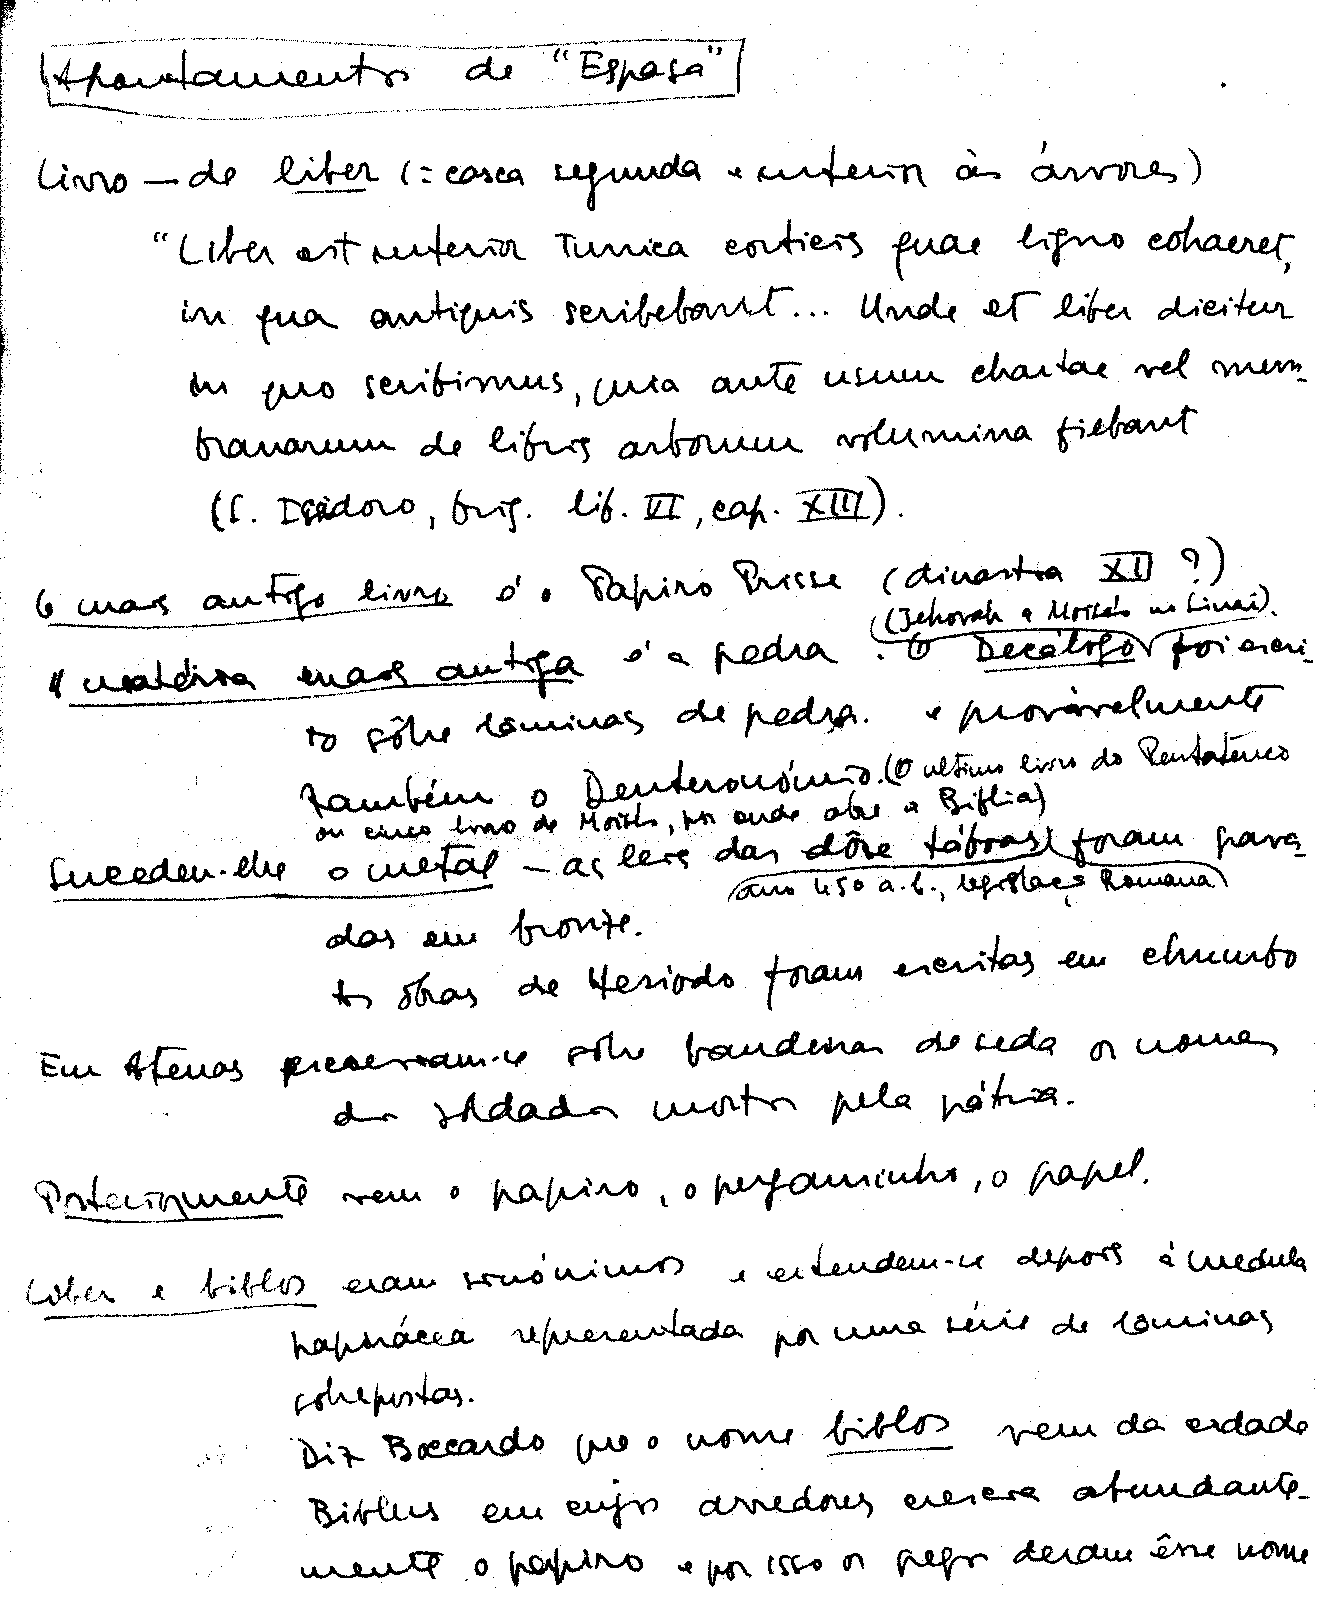 Apontamentos de "Espasa"
Livro — de liber (= casca segunda e interior às árvores)
"Liber est interior tunica corticis quae ligno cohaeret,
in qua antiquis scribebant... Unde et liber dicitur
in quo scribimus, quia ante usum chartae vel mem-
branarum de libris arborum volumina fiebant
(S. Isidoro, Orig. lib. VI, cap. XIII).
O mais antigo livro é o Papiro Prisse (dinastia XII ?)
(Jehovah a Moisés no Sinai).
A matéria mais antiga é a pedra. O Decálogo foi escri-
to sôbre lâminas de pedra. e provàvelmente
também o Deuteronómio. (O ultimo livro do Pentateuco
ou cinco livro de Moisés, por onde abre a Biblia)
Sucedeu-lhe o metal – as leis das dôze tábuas foram grava-
(ano 450 a.C., legislação Romana)
das em bronze.
As obras de Hesiodo foram escritas em chumbo
Em Atenas escreveram-se sôbre bandeiras de seda os nomes
dos soldados mortos pela pátria.
Posteriormente vem o papiro, o pergaminho, o papel.
Liber e biblos eram sinónimos e estendem-se depois à medula
papirácea representada por uma série de lâminas
sobrepostas.
Diz Boccardo que o nome biblos vem da cidade
Biblus em cujos arredores crescia abundante-
mente o papiro e por isso os gregos deram êsse nome